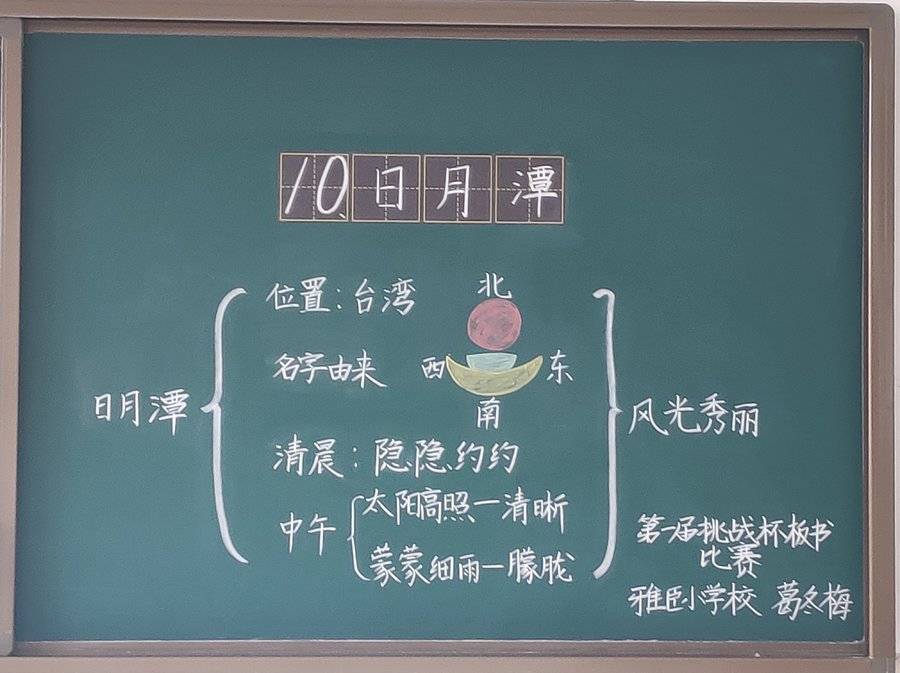 10、日月潭
位置：台湾
北
名字由来
西
东
南
日月潭
风光秀丽
清晨：隐隐约约
中午
太阳高照—清晰
蒙蒙细雨—朦胧
第一届挑战杯板书
比赛
雅臣小学校 葛冬梅